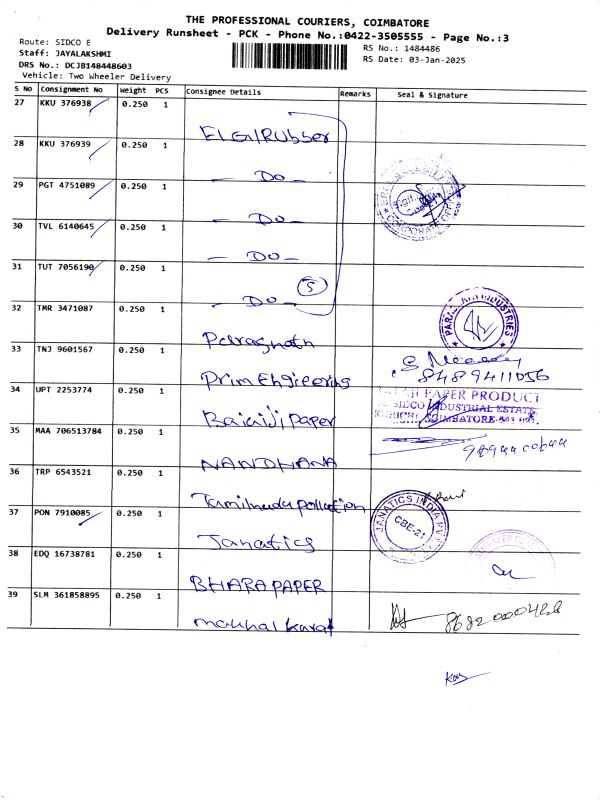 THE PROFESSIONAL COURIERS, COIMBATORE
Delivery Runsheet - PCK - Phone No.:0422-3505555 - Page No.:3
Route: SIDCO E
RS No.: 1484486
Staff: JAYALAKSHMI
RS Date: 03-Jan-2025
DRS No.: DCJB148448603
Vehicle: Two Wheeler Delivery
S No Consignment No Weight PCS Consignee Details Remarks Seal & Signature
27 KKU 376938 0.250 1 ElGi Rubber
28 KKU 376939 0.250 1 — Do —
29 PGT 4751089 0.250 1 — Do —
CORPORATE OFFICE
30 TVL 6140645 0.250 1 — Do —
31 TUT 7056190 0.250 1 — Do —
5
32 TMR 3471087 0.250 1
PARASNATH INDUSTRIES
33 TNJ 9601567 0.250 1 Prim Engieering
8489411056
34 UPT 2253774 0.250 1
PAPER PRODUCT
SIDCO INDUSTRIAL ESTATE
KURICHI, COIMBATORE-641 021.
35 MAA 706513784 0.250 1 NANDHANA
36 TRP 6543521 0.250 1 Tamilnadu pollution
37 PON 7910085 0.250 1 Janatics
JANATICS INDIA PVT
CBE-21
38 EDQ 16738781 0.250 1 BHARA PAPER
39 SLM 361858895 0.250 1 makkal kural